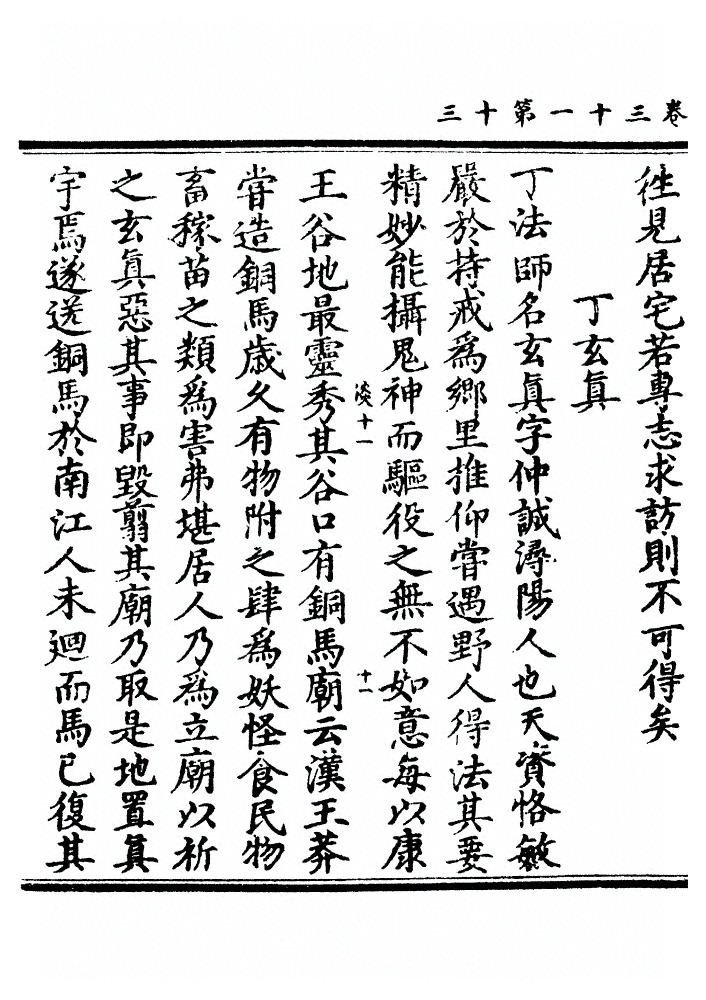 卷三十一第十三
徃見居宅若專志求訪則不可得矣
丁玄眞
丁法師名玄眞字仲誠潯陽人也天資恪敏
嚴於持戒爲鄉里推仰嘗遇野人得法其要
精妙能攝鬼神而驅役之無不如意每以康
淡十一
十一
王谷地最靈秀其谷口有銅馬廟云漢王莽
甞造銅馬歲久有物附之肆爲妖怪食民物
畜稼苗之類爲害弗堪居人乃爲立廟以祈
之玄眞惡其事即毀翦其廟乃取是地置眞
宇焉遂送銅馬於南江人未迴而馬已復其